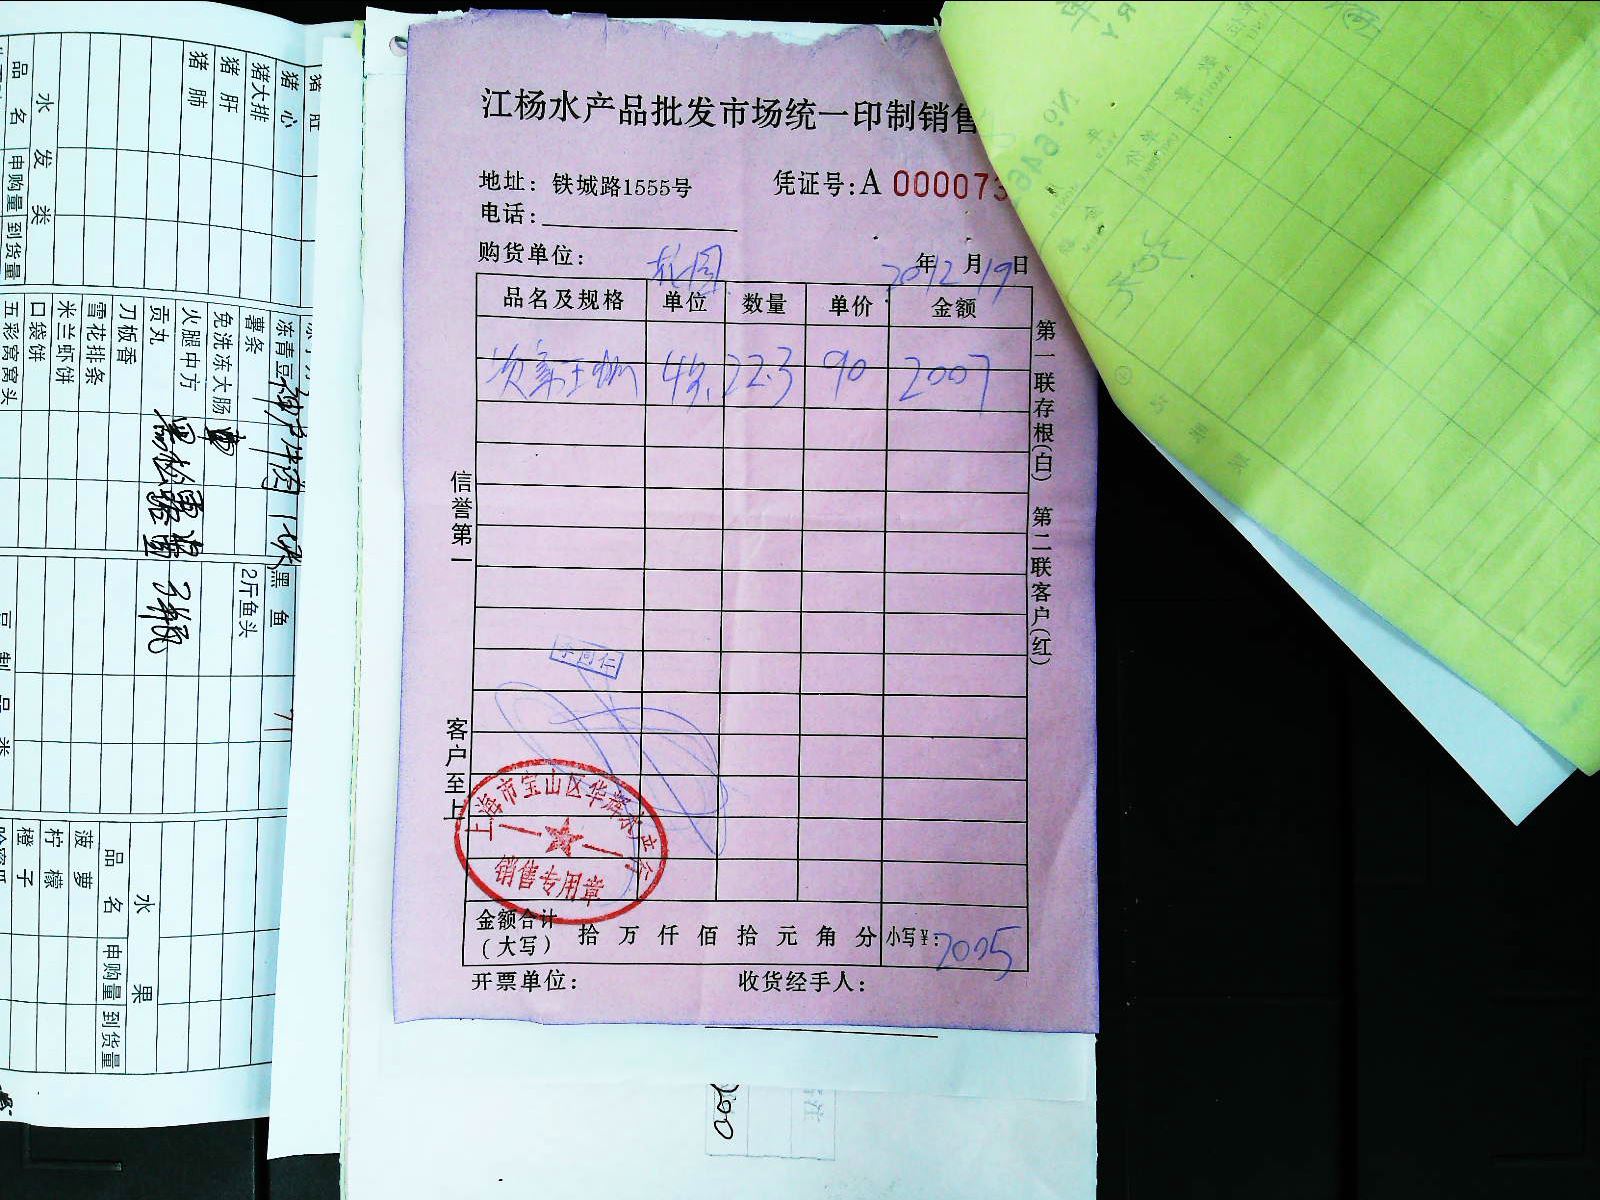 江杨水产品批发市场统一印制销售
地址：铁城路1555号
凭证号：A 000073
电话：
购货单位：
年 月 日
20 12 19
品名及规格 单位 数量 单价 金额
22.3 90 2007
信誉第一
客户至上
第一联存根(白) 第二联客户(红)
李同仁
上海市宝山区华辉水产行
销售专用章
金额合计
(大写) 拾 万 仟 佰 拾 元 角 分 小写¥: 2005
开票单位：
收货经手人：
猪肛
猪心
猪大排
猪肝
猪肺
水发类
品名 申购量 到货量
冻青豆
薯条
免洗冻大肠
火腿中方
贡丸
刀板香
雪花排条
米兰虾饼
口袋饼
五彩窝窝头
黑鱼
2斤鱼头
豆制品类
水果
品名 申购量 到货量
菠萝
柠檬
橙子
哈密瓜
200